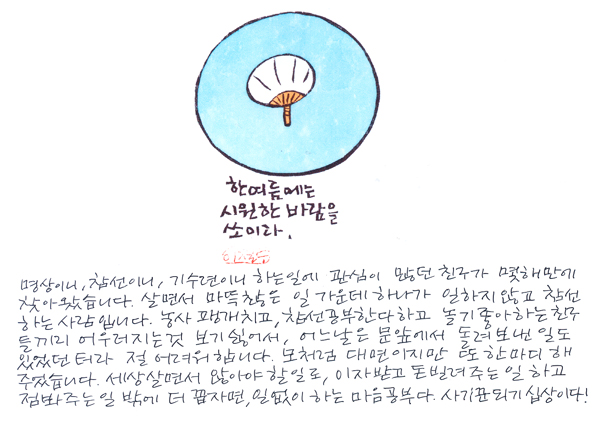 한여름에는
시원한 바람을
쏘이라.
명상이니, 참선이니, 기수련이니 하는일에 관심이 많던 친구가 몇해만에
찾아왔습니다. 살면서 마뜩찮은 일 가운데하나가 일하지않고 참선
하는 사람입니다. 농사 팽개치고, 참선공부한다하고 놀기좋아하는친구
들끼리 어우러지는것 보기싫어서, 어느날은 문앞에서 돌려보낸 일도
있었던 터라 절 어려워합니다. 모처럼 대면이지만 또 한마디 해
주었습니다. 세상살면서 않아야 할 일로, 이자받고 돈빌려주는 일 하고
점봐주는일 밖에 더 꼽자면, 일없이 하는 마음공부다. 사기꾼되기 십상이다!